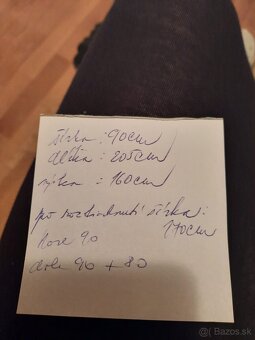 šírka : 90cm
dĺžka : 205cm
výška : 160cm
po rozkliknutí šírka :
170cm
hore 90
dole 90 + 80
© bazar.sk